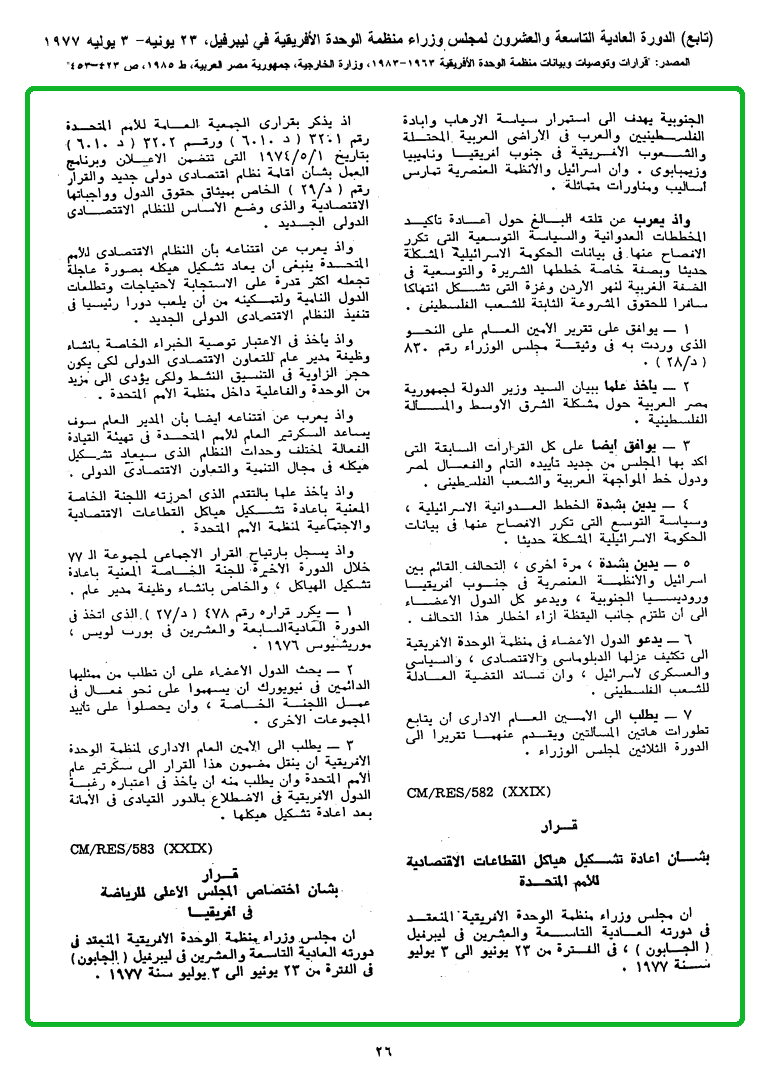 (تابع) الدورة العادية التاسعة والعشرون لمجلس وزراء منظمة الوحدة الأفريقية في ليبرفيل، ٢٣ يونيه- ٣ يوليه ١٩٧٧
المصدر: "قرارات وتوصيات وبيانات منظمة الوحدة الأفريقية ١٩٦٣-١٩٨٣، وزارة الخارجية، جمهورية مصر العربية، ط ١٩٨٥، ص ٤٢٣-٤٥٣"
الجنوبية يهدف الى استمرار سياسة الارهاب وابادة
الفلسطينيين والعرب فى الأراضى العربية المحتلة
والشعوب الأفريقية فى جنوب أفريقيا وناميبيا
وزيمبابوى . وان اسرائيل والأنظمة العنصرية تمارس
أساليب ومناورات متماثلة .
واذ يعرب عن قلقه البالغ حول اعادة تأكيد
المخططات العدوانية والسياسة التوسعية التى تكرر
الافصاح عنها فى بيانات الحكومة الاسرائيلية المشكلة
حديثا وبصفة خاصة خططها الشريرة والتوسعية فى
الضفة الغربية لنهر الأردن وغزة التى تشكل انتهاكا
سافرا للحقوق المشروعة الثابتة للشعب الفلسطينى .
١ — يوافق على تقرير الأمين العام على النحو
الذى وردت به فى وثيقة مجلس الوزراء رقم ٨٣٠
( د/٢٨ ) .
٢ — يأخذ علما ببيان السيد وزير الدولة لجمهورية
مصر العربية حول مشكلة الشرق الأوسط والمسألة
الفلسطينية .
٣ — يوافق أيضا على كل القرارات السابقة التى
أكد بها المجلس من جديد تأييده التام والفعال لمصر
ودول خط المواجهة العربية والشعب الفلسطينى .
٤ — يدين بشدة الخطط العدوانية الاسرائيلية ،
وسياسة التوسع التى تكرر الافصاح عنها فى بيانات
الحكومة الاسرائيلية المشكلة حديثا .
٥ — يدين بشدة ، مرة أخرى ، التحالف القائم بين
اسرائيل والأنظمة العنصرية فى جنوب أفريقيا
وروديسيا الجنوبية ، ويدعو كل الدول الأعضاء
الى ان تلتزم جانب اليقظة ازاء اخطار هذا التحالف .
٦ — يدعو الدول الأعضاء فى منظمة الوحدة الأفريقية
الى تكثيف عزلها الدبلوماسى والاقتصادى ، والسياسى
والعسكرى لاسرائيل ، وان تساند القضية العادلة
للشعب الفلسطينى .
٧ — يطلب الى الأمين العام الادارى ان يتابع
تطورات هاتين المسألتين ويقدم عنهما تقريرا الى
الدورة الثلاثين لمجلس الوزراء .
CM/RES/582 (XXIX)
قرار
بشأن اعادة تشكيل هياكل القطاعات الاقتصادية
للأمم المتحدة
ان مجلس وزراء منظمة الوحدة الأفريقية المنعقد
فى دورته العادية التاسعة والعشرين فى ليبرفيل
( الجابون ) ، فى الفترة من ٢٣ يونيو الى ٣ يوليو
سنة ١٩٧٧ .
اذ يذكر بقرارى الجمعية العامة للأمم المتحدة
رقم ٣٢٠١ ( د ٦٠١٠ ) ورقم ٣٢٠٢ ( د ٦٠١٠ )
بتاريخ ١٩٧٤/٥/١ التى تتضمن الاعلان وبرنامج
العمل بشأن أقامة نظام اقتصادى دولى جديد والقرار
رقم ( د/٢٩ ) الخاص بميثاق حقوق الدول وواجباتها
الاقتصادية والذى وضع الأساس للنظام الاقتصادى
الدولى الجديد .
واذ يعرب عن اقتناعه بأن النظام الاقتصادى للأمم
المتحدة ينبغى أن يعاد تشكيل هيكله بصورة عاجلة
تجعله اكثر قدرة على الاستجابة لأحتياجات وتطلعات
الدول النامية ولتمكينه من أن يلعب دورا رئيسيا فى
تنفيذ النظام الاقتصادى الدولى الجديد .
واذ يأخذ فى الاعتبار توصية الخبراء الخاصة بانشاء
وظيفة مدير عام للتعاون الاقتصادى الدولى لكى يكون
حجر الزاوية فى التنسيق النشط ولكى يؤدى الى مزيد
من الوحدة والفاعلية داخل منظمة الأمم المتحدة .
واذ يعرب عن اقتناعه أيضا بأن المدير العام سوف
يساعد السكرتير العام للأمم المتحدة فى تهيئة القيادة
الفعالة لمختلف وحدات النظام الذى سيعاد تشكيل
هيكله فى مجال التنمية والتعاون الاقتصادى الدولى .
واذ يأخذ علما بالتقدم الذى أحرزته اللجنة الخاصة
المعنية باعادة تشكيل هياكل القطاعات الاقتصادية
والاجتماعية لمنظمة الأمم المتحدة .
واذ يسجل بارتياح القرار الاجماعى لمجموعة الـ ٧٧
خلال الدورة الأخيرة للجنة الخاصة المعنية باعادة
تشكيل الهياكل ، والخاص بانشاء وظيفة مدير عام .
١ — يكرر قراره رقم ٤٧٨ ( د/٢٧ ) الذى اتخذ فى
الدورة العادية السابعة والعشرين فى بورت لويس ،
موريشيوس ١٩٧٦ .
٢ — يحث الدول الأعضاء على ان تطلب من ممثليها
الدائمين فى نيويورك ان يسهموا على نحو فعال فى
عمل اللجنة الخاصة ، وان يحصلوا على تأييد
المجموعات الأخرى .
٣ — يطلب الى الأمين العام الادارى لمنظمة الوحدة
الأفريقية أن ينقل مضمون هذا القرار الى سكرتير عام
الأمم المتحدة وان يطلب منه ان يأخذ فى اعتباره رغبة
الدول الأفريقية فى الاضطلاع بالدور القيادى فى الأمانة
بعد اعادة تشكيل هيكلها .
CM/RES/583 (XXIX)
قرار
بشان اختصاص المجلس الأعلى للرياضة
فى أفريقيا
ان مجلس وزراء منظمة الوحدة الأفريقية المنعقد فى
دورته العادية التاسعة والعشرين فى ليبرفيل ( الجابون )
فى الفترة من ٢٣ يونيو الى ٣ يوليو سنة ١٩٧٧ .
٢٦